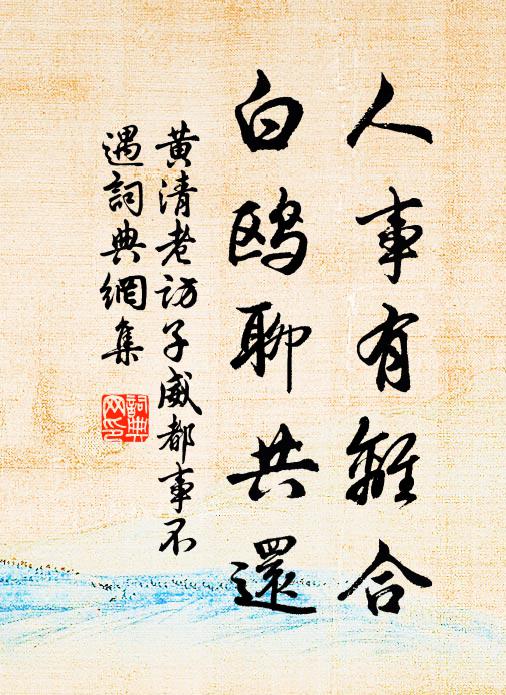 人事有離合
白鸥聊共還
黃清老訪子威都事不
遇詞典網集
詞典
网印